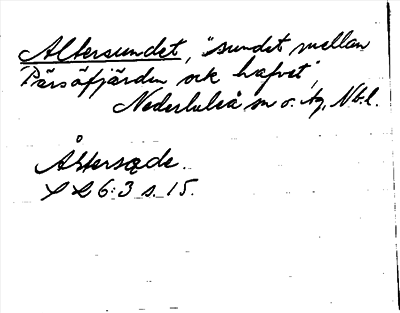 Altersundet, "sundet mellan
Pärsöfjärden och hafvet",
Nederluleå sn o. tg, Nb.l.
Åltersǫde.
S L 6:3 s. 15.